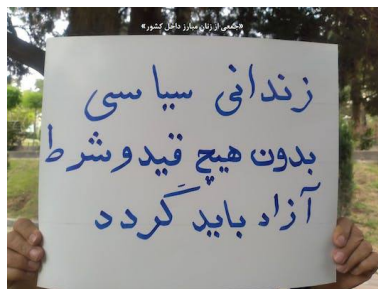 «جمعی از زنان مبارز داخل کشور»
زندانی سیاسی
بدون هیچ قیدو شرط
آزاد باید گردد